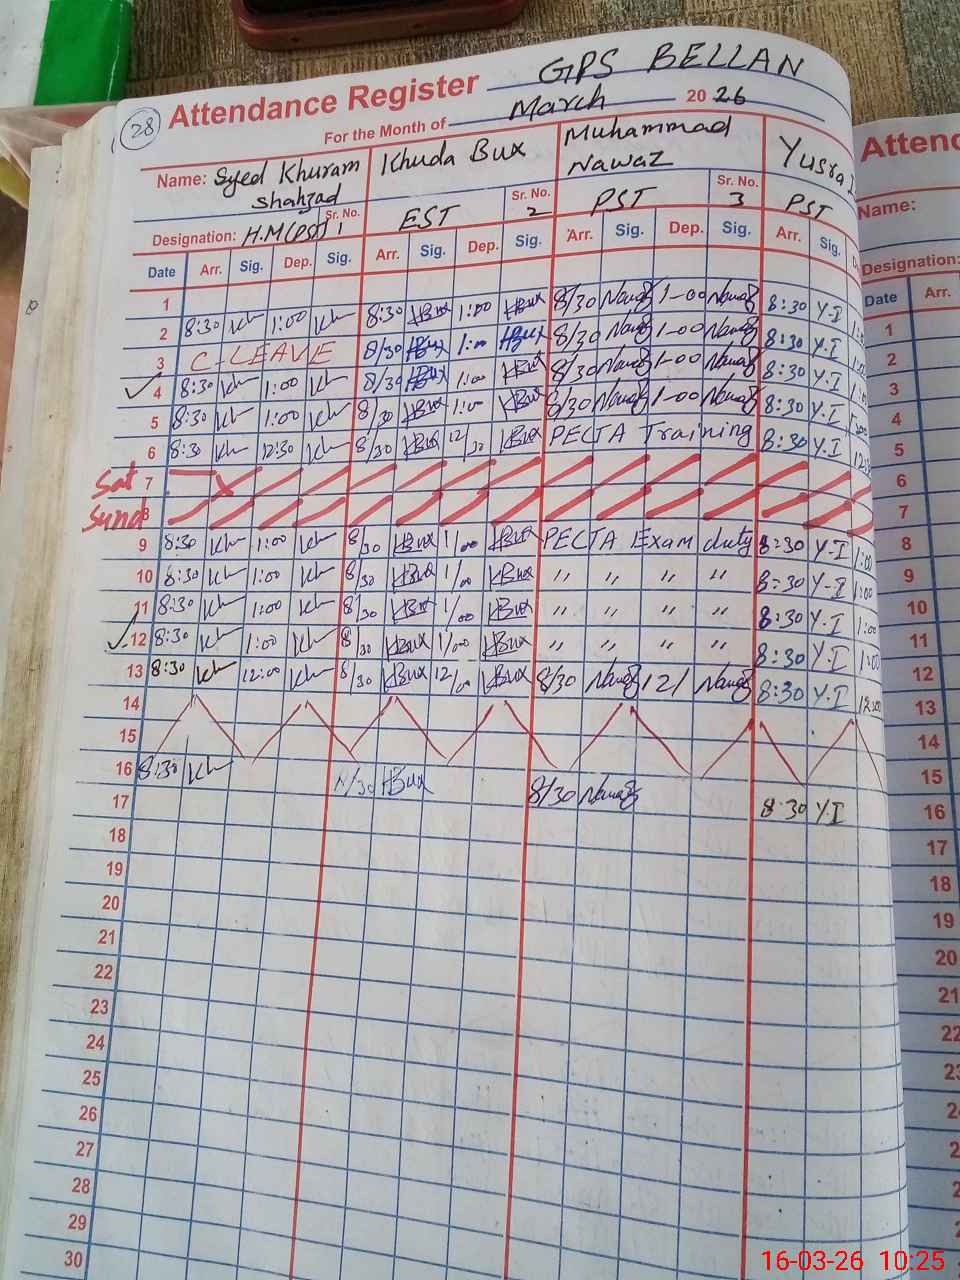 28
Attendance Register GPS BELLAN
For the Month of March 2026
Name: Syed Khuram Shahzad Khuda Bux Muhammad Nawaz Yusra
Designation: H.M(PST) Sr. No. 1 EST Sr. No. 2 PST Sr. No. 3 PST
Date Arr. Sig. Dep. Sig. Arr. Sig. Dep. Sig. Arr. Sig. Dep. Sig. Arr. Sig.
1
2 8:30 Kh 1:00 Kh 8:30 KBux 1:00 KBux 8/30 Nawaz 1-00 Nawaz 8:30 Y.I
3 C-LEAVE 8/30 KBux 1:00 KBux 8/30 Nawaz 1-00 Nawaz 8:30 Y.I
4 8:30 Kh 1:00 Kh 8/30 KBux 1:00 KBux 8/30 Nawaz 1-00 Nawaz 8:30 Y.I 1:00
5 8:30 Kh 1:00 Kh 8/30 KBux 1:00 KBux 8/30 Nawaz 1-00 Nawaz 8:30 Y.I
6 8:30 Kh 12:30 Kh 8/30 KBux 12/30 KBux PECTA Training 8:30 Y.I
Sat 7
Sund 8
9 8:30 Kh 1:00 Kh 8/30 KBux 1/00 KBux PECTA Exam duty 8:30 Y.I 1:00
10 8:30 Kh 1:00 Kh 8/30 KBux 1/00 KBux " " " " 8:30 Y-I 1:00
11 8:30 Kh 1:00 Kh 8/30 KBux 1/00 KBux " " " " 8:30 Y.I 1:00
12 8:30 Kh 1:00 Kh 8/30 KBux 1/00 KBux " " " " 8:30 Y.I 1:00
13 8:30 Kh 12:00 Kh 8/30 KBux 12/00 KBux 8/30 Nawaz 12/ Nawaz 8:30 Y.I
14
15
16 8:30 Kh KBux 8/30 Nawaz 8:30 Y.I
17
18
19
20
21
22
23
24
25
26
27
28
29
30
Attend
Name:
Designation:
Date Arr.
1
2
3
4
5
6
7
8
9
10
11
12
13
14
15
16
17
18
19
20
21
22
16-03-26 10:25